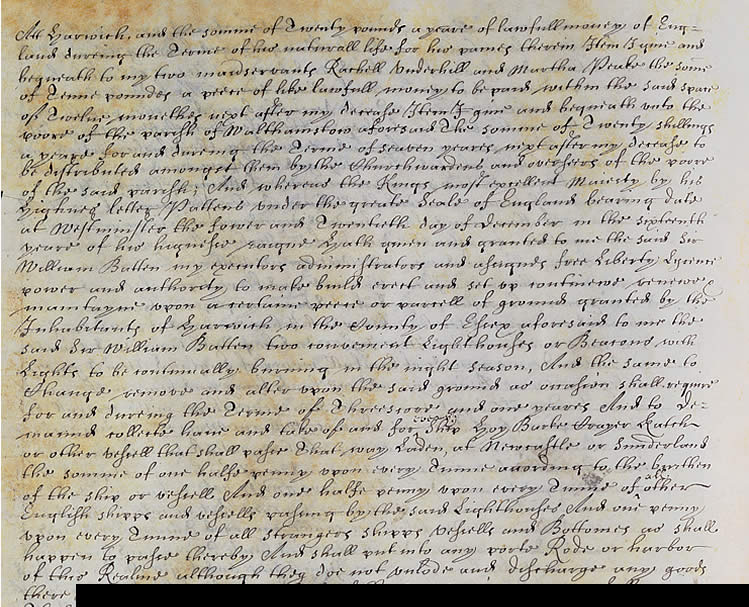 Att Harwich, and the somme of Twenty pounds a yeare of lawfull money of Eng=
land dureing the Terme of his naturall life for his paines therein Item I give and
bequeath to my two maidservants Rachell Underhill and Martha Peake the some
of Tenne poundes a peece of like lawfull money to be paid within the said space
of Twelve monethes next after my decease Item I give and bequeath unto the
poore of the parish of Walthamstow aforesaid The somme of Twenty shillings
a yeare for and dureing the Terme of seaven yeares next after my decease to
be distributed amongst them by the Churchwardens and overseers of the poore
of the said parish; And whereas the Kings most excellent Majesty by his
highnes letters Pattents under the greate Seale of England bearing date
at Westminster the fower and Twentieth day of December in the sixteenth
yeare of his highnesse raigne Hath given and granted to me the said Sir
William Batten my executors administrators and assignes free Liberty Licence
power and authority to make build erect and set up continewe renewe
maintayne upon a certaine peece or parcell of ground granted by the
Inhabitants of Harwich in the County of Essex aforesaid to me the
said Sir William Batten two convenient Lighthouses or Beacons with
Lights to be continually burning in the night season, And the same to
Change remove and alter upon the said ground as occasion shall require
for and dureing the Terme of Threescore and one yeares And to De=
maund collecte have and take of and for every Ship Hoy Barke Crayer Catch
or other vessell that shall passe That way Laden, at Newcastle or Sunderland
the somme of one halfe penny upon every Tunne according to the burthen
of the ship or vessell And one halfe penny upon every Tunne of all other
English shipps and vessells passing by the said Lighthouses And one penny
upon every Tunne of all strangers shipps vessells and Bottomes as shall
happen to passe thereby And shall put into any porte Rode or harbor
of this Realme although they doe not unlode and discharge any goods
there